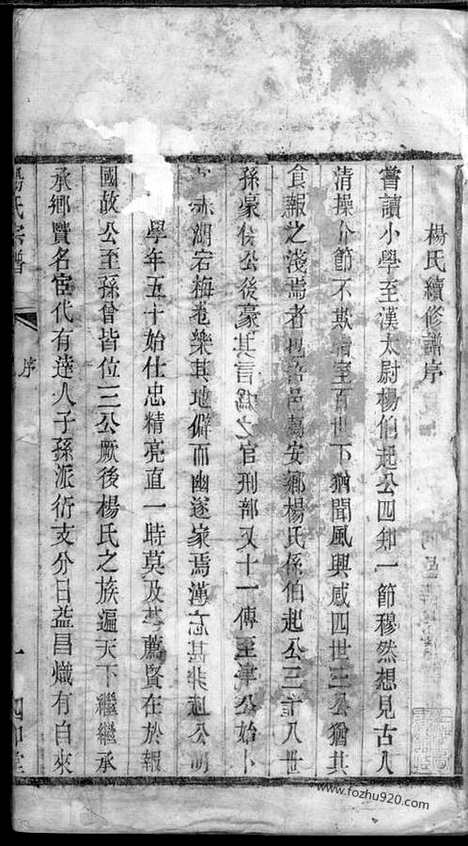 楊氏續修譜序
嘗讀小學至漢太尉楊伯起公四知一節穆然想見古人
清操介節不欺暗室百世下猶聞風興感四世三公猶其
食報之淺焉者也邑萬安鄉楊氏係伯起公三十八世
孫豪侯公後豪其言為之官刑部又十一傳至津公始卜
赤湖宕梅巷樂其地僻而幽遂家焉謹忘甚非起公明
學年五十始仕忠精亮直一時莫及其薦賢在於報
國故公至孫曾皆位三公厥後楊氏之族遍天下繼繼承
承鄉賢名宦代有達人子孫派衍支分日益昌熾有自來
楊氏宗譜
序
一
四知堂
www.fozhu920.com